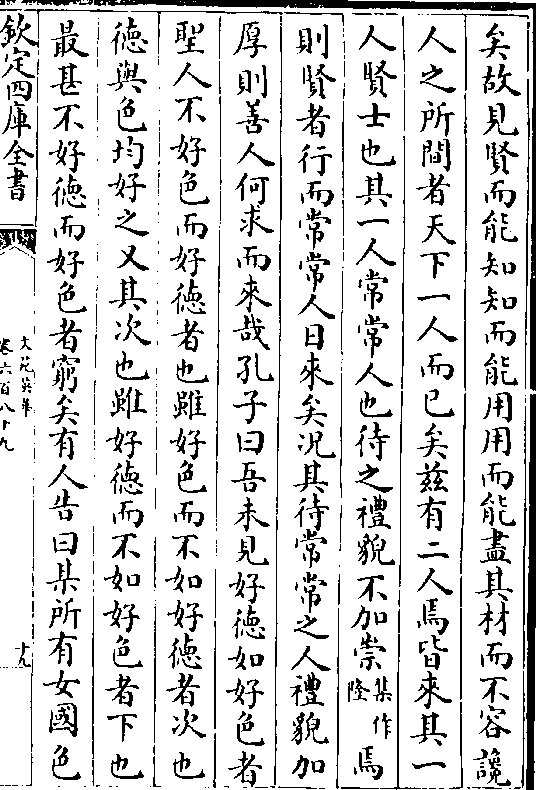 矣故見賢而能知知而能用用而能盡其材而不容讒
人之所間者天下一人而已矣兹有二人焉皆來其一
人賢士也其一人常常人也待之禮貌不加崇集作隆焉
則賢者行而常常人日來矣况其待常常之人禮貌加
厚則善人何求而來哉孔子曰吾未見好徳如好色者
聖人不好色而好徳者也雖好色而不如好徳者次也
徳與色均好之又其次也雖好徳而不如好色者下也
最甚不好徳而好色者窮矣有人告曰某所有女國色
欽定四庫全書
文苑英華
卷六百八十九
十九